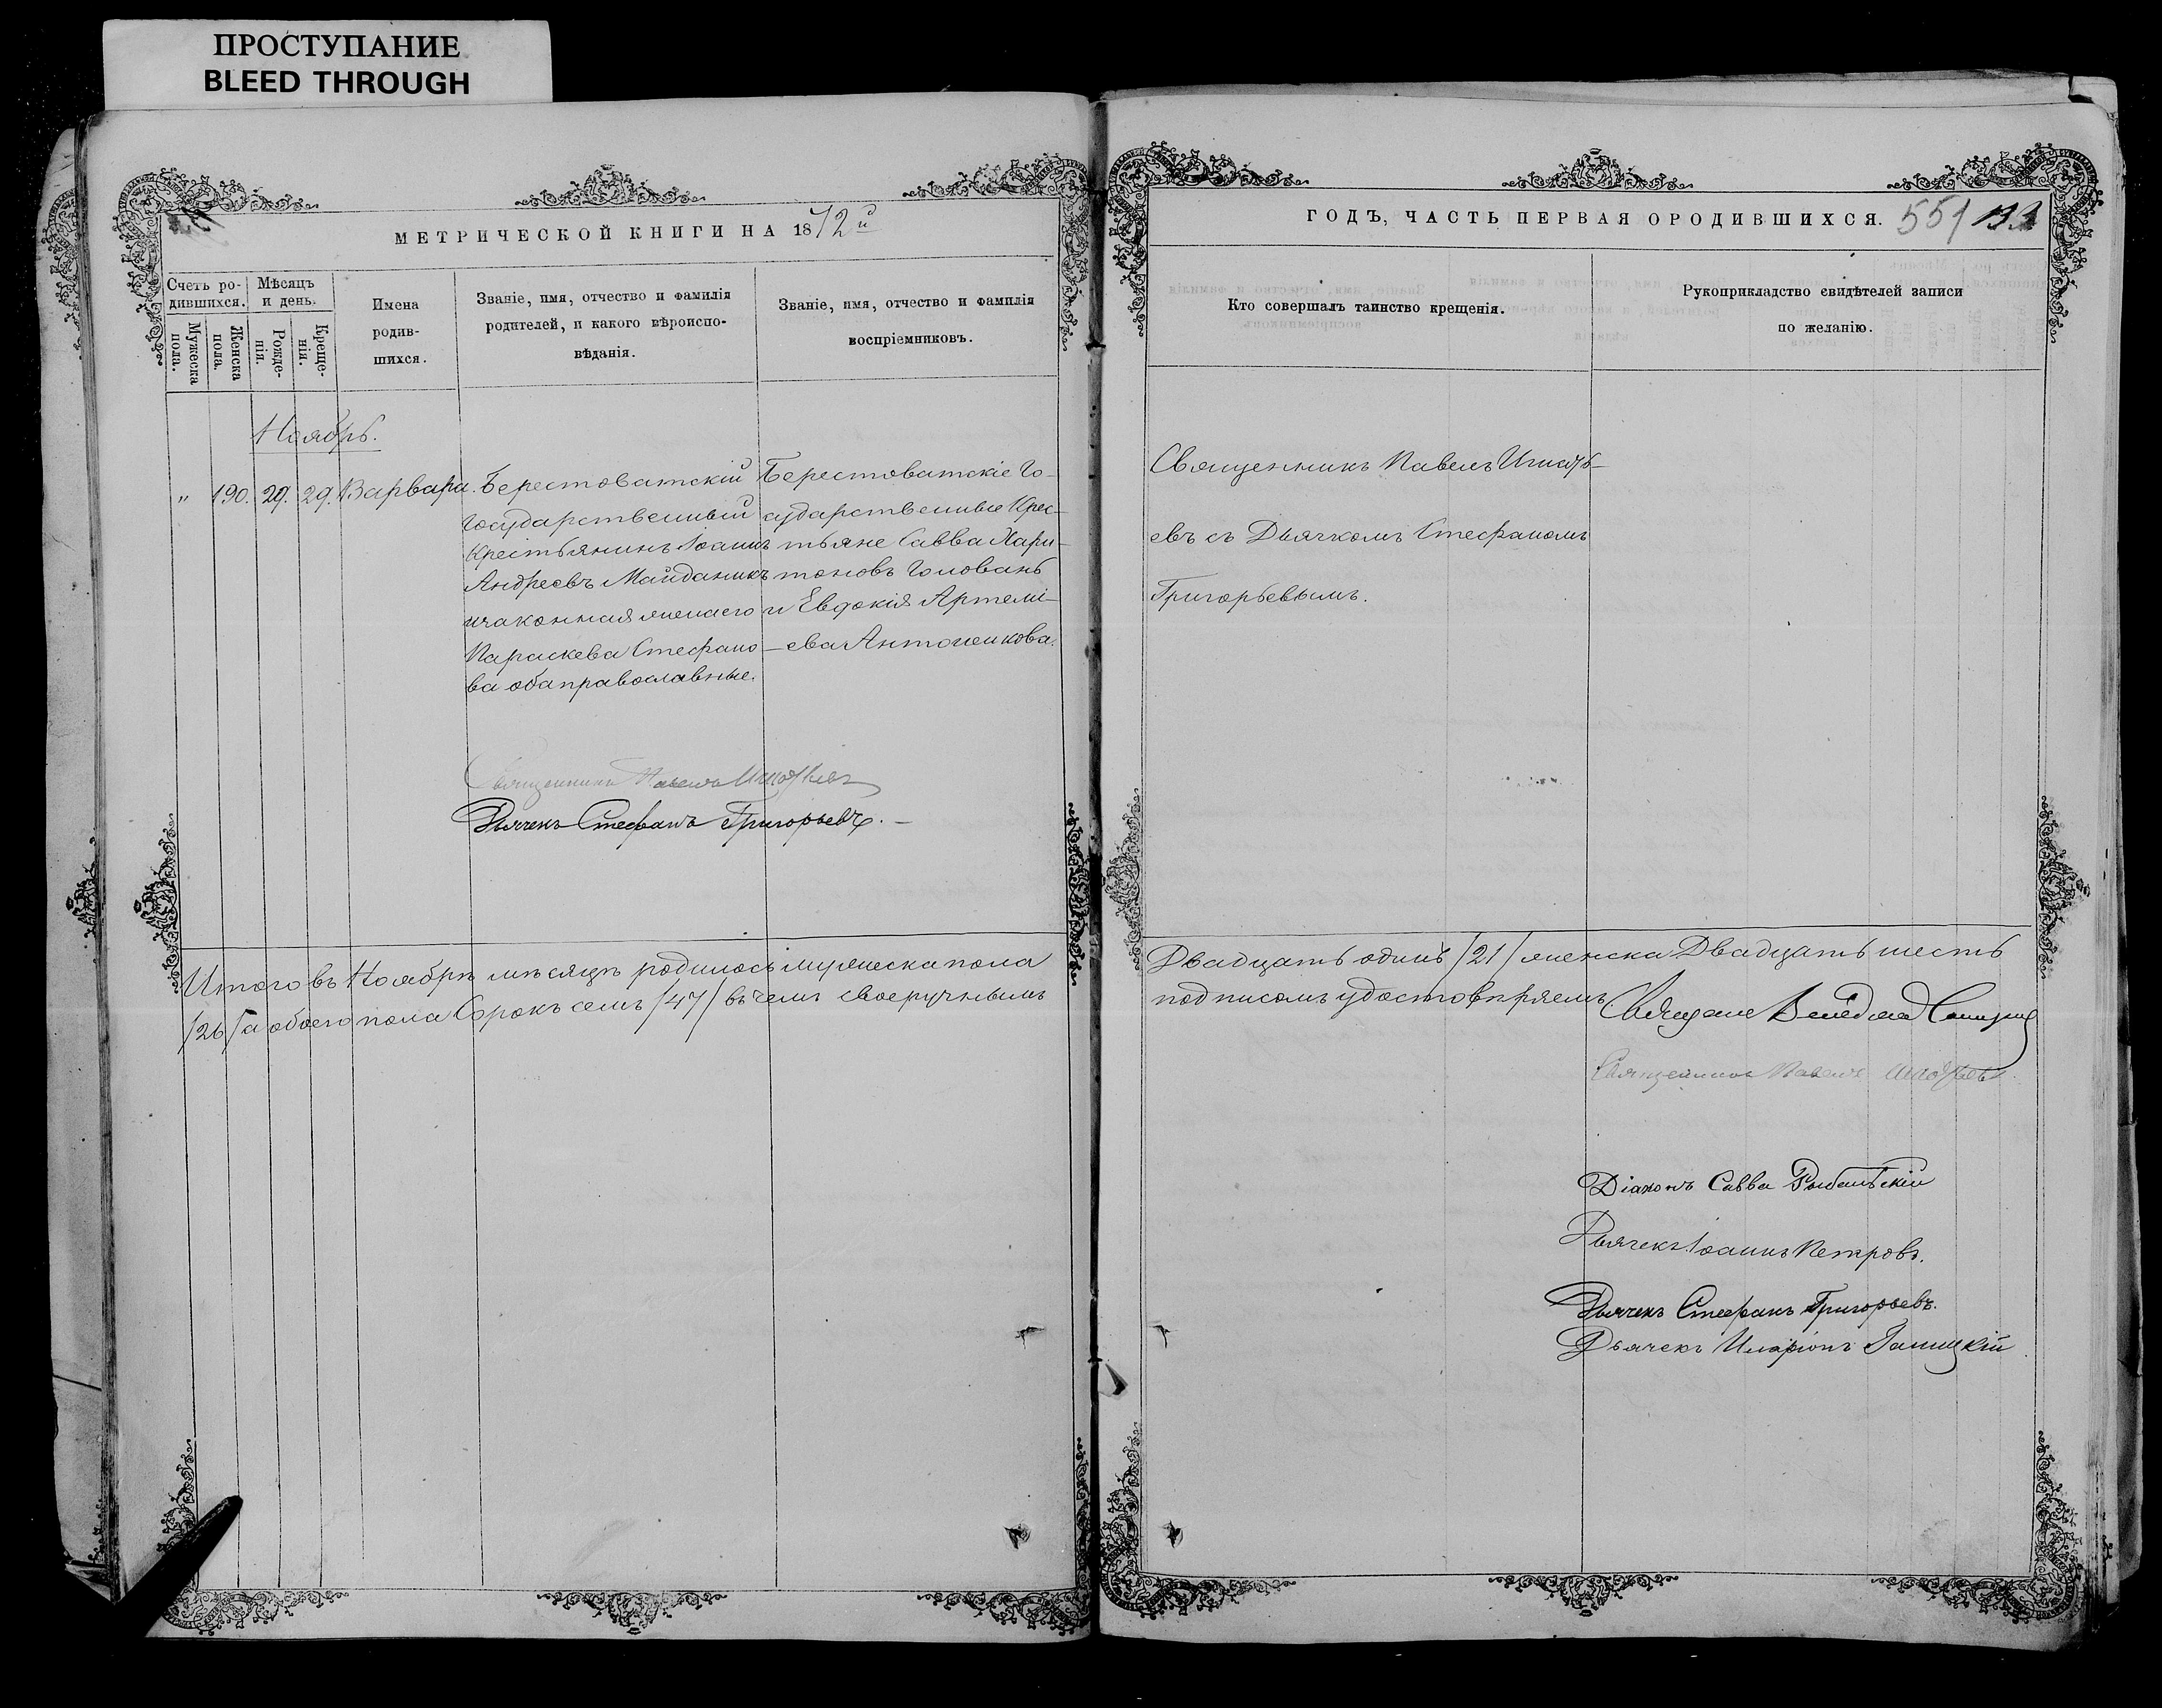 ПРОСТУПАНИЕ
BLEED THROUGH
МЕТРИЧЕСКОЙ КНИГИ НА 1872й
Счетъ ро-
дившихся.
Мѣсяцъ
и день.
Мужеска
пола.
Женска
пола.
Рожде-
нія.
Креще-
нія.
Имена
родив-
шихся.
Званіе, имя, отчество и фамилія
родителей, и какого вѣроиспо-
вѣданія.
Званіе, имя, отчество и фамилія
воспріемниковъ.
Ноябрь.
" 190. 29. 29. Варвара.
Берестоватскій
Государственный
крестьянинъ Іоаннъ
Андреевъ Майданикъ
и законная жена его
Параскева Стефано-
ва оба православные.
Берестоватскіе Го-
сударственные Крес-
тьяне Савва Хари-
тоновъ Головань
и Евдокія Артемі-
ева Антоненкова.
Священникъ Павелъ Игнатьевъ
Дьячекъ Стефанъ Григорьевъ.
Итого въ Ноябрѣ мѣсяцѣ родилось мужеска пола
/26/ а обоего пола Сорокъ семь /47/ въ чемъ своеручнымъ
ГОДЪ, ЧАСТЬ ПЕРВАЯ О РОДИВШИХСЯ. 551
Кто совершалъ таинство крещенія.
Рукоприкладство свидѣтелей записи
по желанію.
Священникъ Павелъ Игнать-
евъ съ Дьячкомъ Стефаномъ
Григорьевымъ.
Двадцать одинъ /21/ женска Двадцать шесть
подписомъ удостовѣряемъ
Священникъ Павелъ Игнатьевъ
Діаконъ Савва
Дьячекъ Іоаннъ Петровъ.
Дьячекъ Стефанъ Григорьевъ.
Дьячекъ Иларіонъ